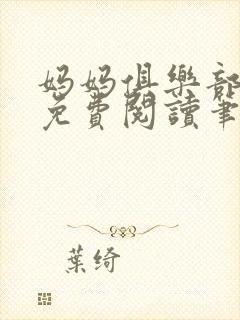 妈妈俱樂部
免費閱讀筆
葉绮